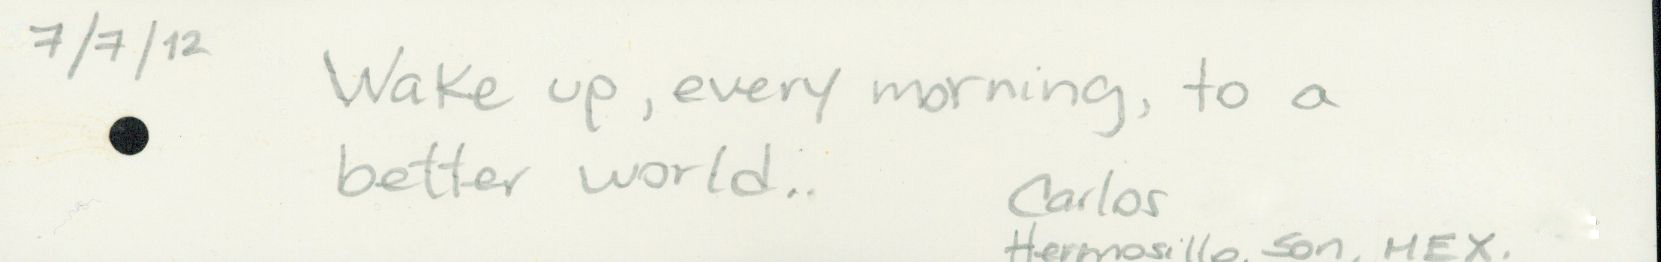 7/7/12
Wake up, every morning, to a
better world...
Carlos
Hermosillo, Son, MEX.